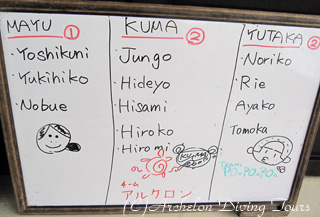 MAYU ①
・Yoshikuni
・Yukihiko
・Nobue
KUMA ②
・Jungo
・Hideyo
・Hisami
・Hiroko
・Hiromi
チーム
アルケロン
YUTAKA ②
・Noriko
・Rie
Ayako
Tomoka
(C)Archelon Diving Tours